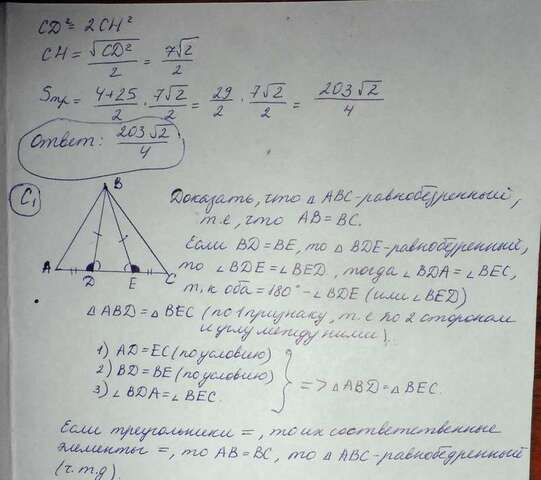 CD² = 2CH²
CH = √CD²/2 = 7√2/2
Sтр = 4+25/2 · 7√2/2 = 29/2 · 7√2/2 = 203√2/4
Ответ: 203√2/4
C₁
B
A D E C
Доказать, что △ ABC-равнобедренный,
т.е, что AB = BC.
Если BD = BE, то △ BDE-равнобедренный,
то ∠ BDE = ∠ BED, тогда ∠ BDA = ∠ BEC,
т.к оба = 180° - ∠ BDE (или ∠ BED)
△ ABD = △ BEC (по 1 признаку, т.е по 2 сторонам
и углу между ними).
1) AD = EC (по условию)
2) BD = BE (по условию)
3) ∠ BDA = ∠ BEC.
=> △ ABD = △ BEC.
Если треугольники =, то их соответственные
элементы =, то AB = BC, то △ ABC-равнобедренный
(ч.т.д)